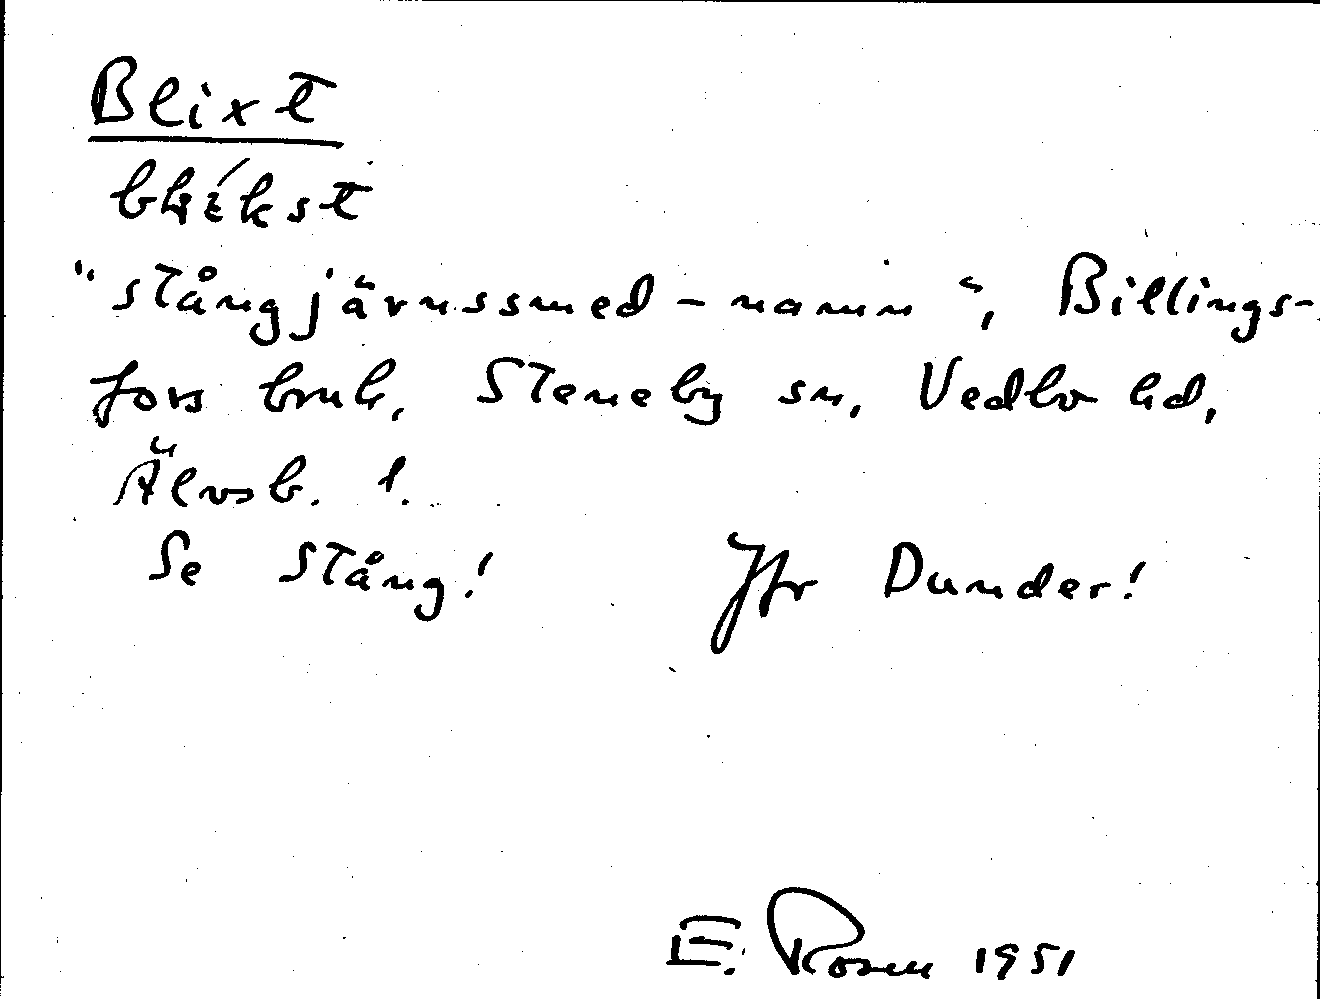 Blixt
"stångjärnssmed-namn", Billings-
fors bruk, Steneby sn, Vedbo hd,
Älvsb. l.
Se Stång! Jfr Dunder!
E. Rosen 1951